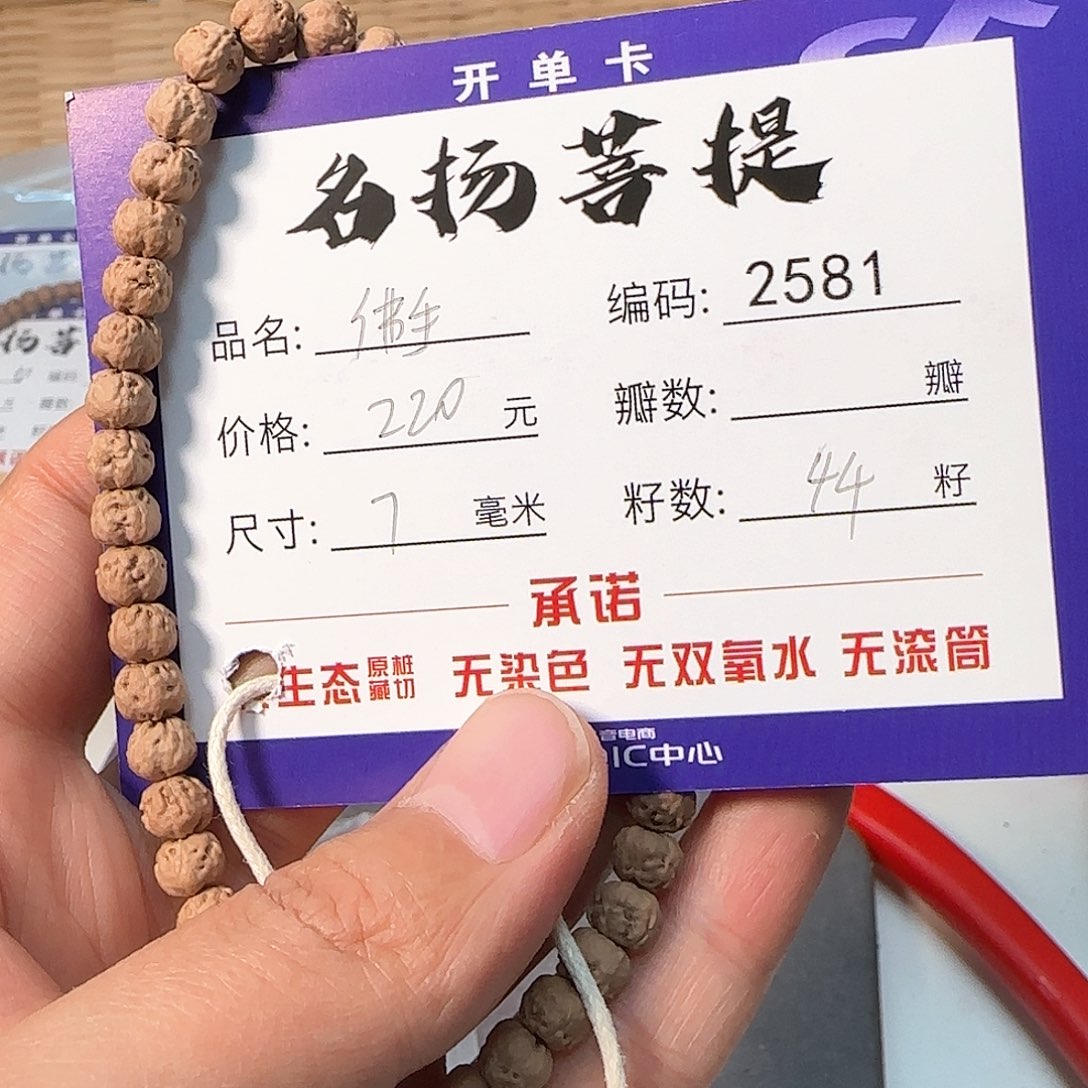 开单卡
名扬菩提
品名: 佛手 编码: 2581
价格: 220 元 瓣数: 瓣
尺寸: 7 毫米 籽数: 44 籽
承诺
生态 原桩藏切 无染色 无双氧水 无滚筒
音电商
IC中心